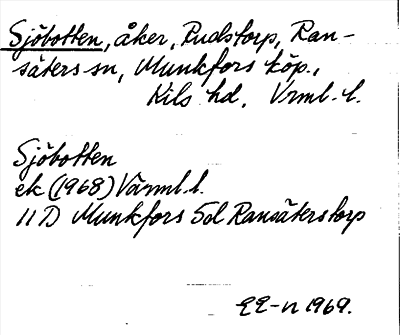 Sjöbotten, åker, Rudstorp, Ran-
säters sn, Munkfors köp.,
Kils hd, Vrml. l.
Sjöbotten
ek (1968) Värml. l.
11 D Munkfors 5d Ransäterstorp
EE-n 1969.